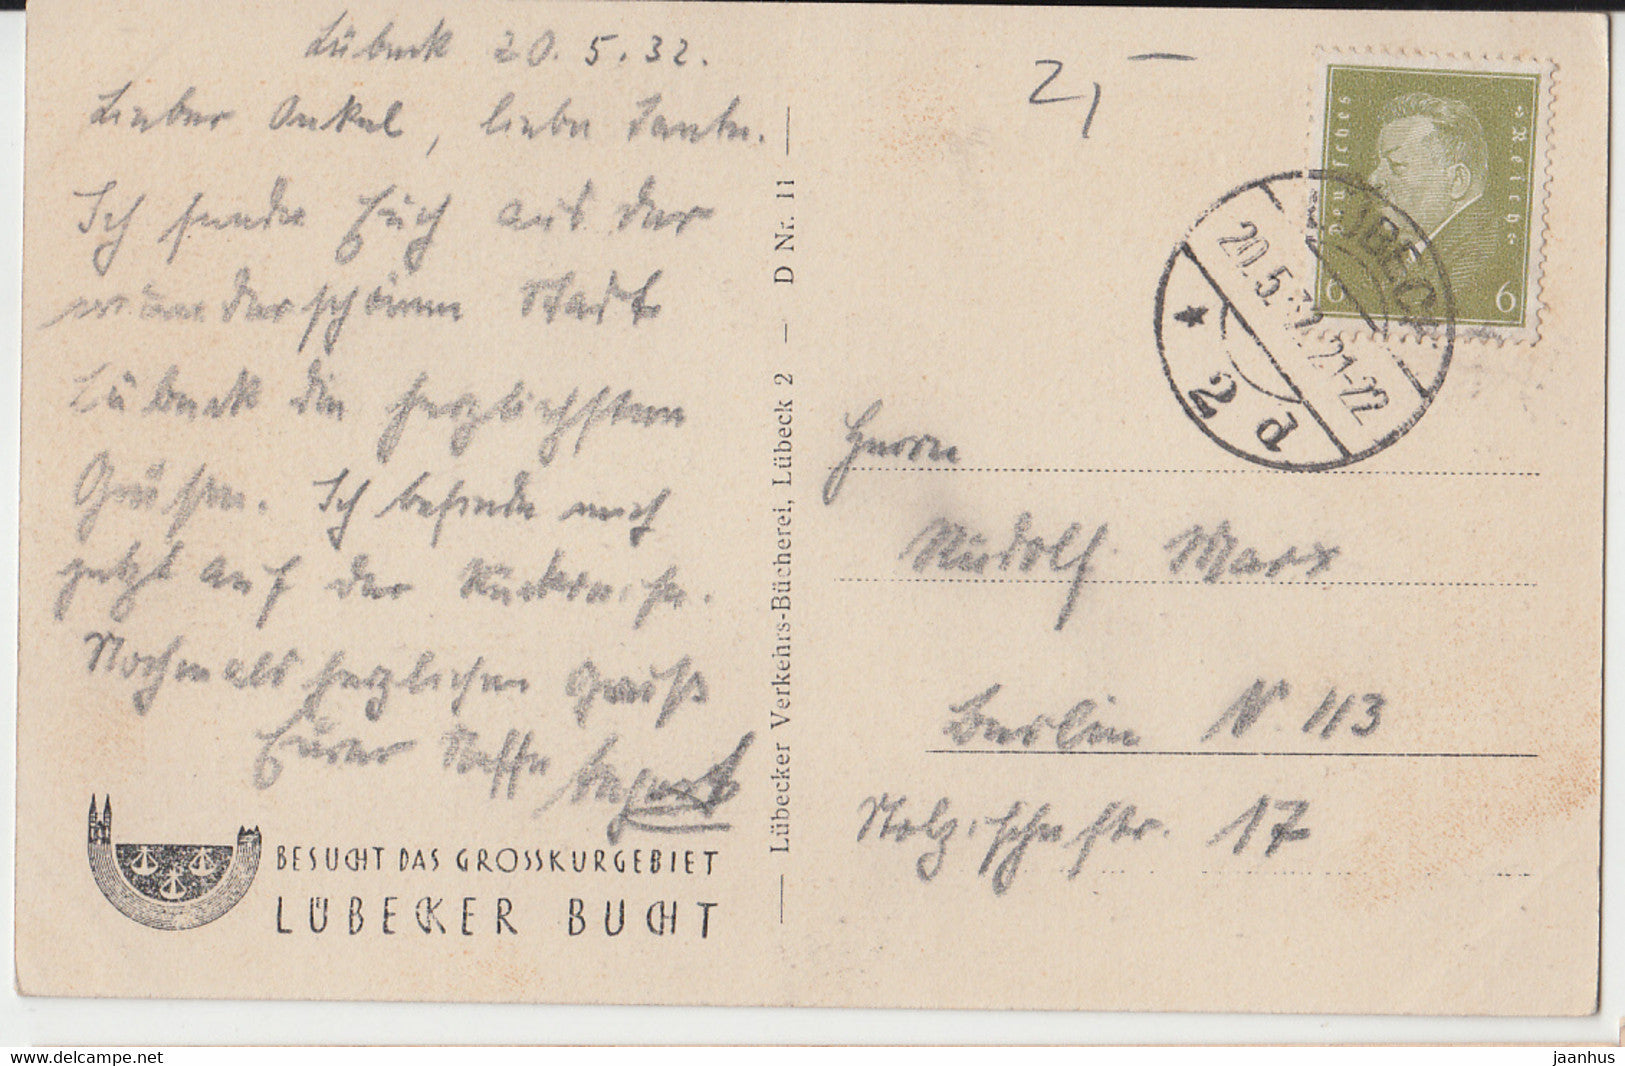 Lübeck 20.5.32.
Lieber Onkel, liebe Tante.
Ich sende Euch aus der
wunderschönen Stadt
Lübeck die herzlichsten
Grüßen. Ich befinde mich
jetzt auf der Rückreise.
Nochmals herzlichen Gruß
Eurer Neffe August
BESUCHT DAS GROSSKURGEBIET
LÜBECKER BUCHT
Lübecker Verkehrs-Bücherei, Lübeck 2 — D Nr. 11
2,—
Deutsches Reich
6 6
LÜBECK
20.5.32.21-22
* 2 d
Herrn
Rudolf Marx
Berlin N. 113
17
delcampe.net
jaanhus